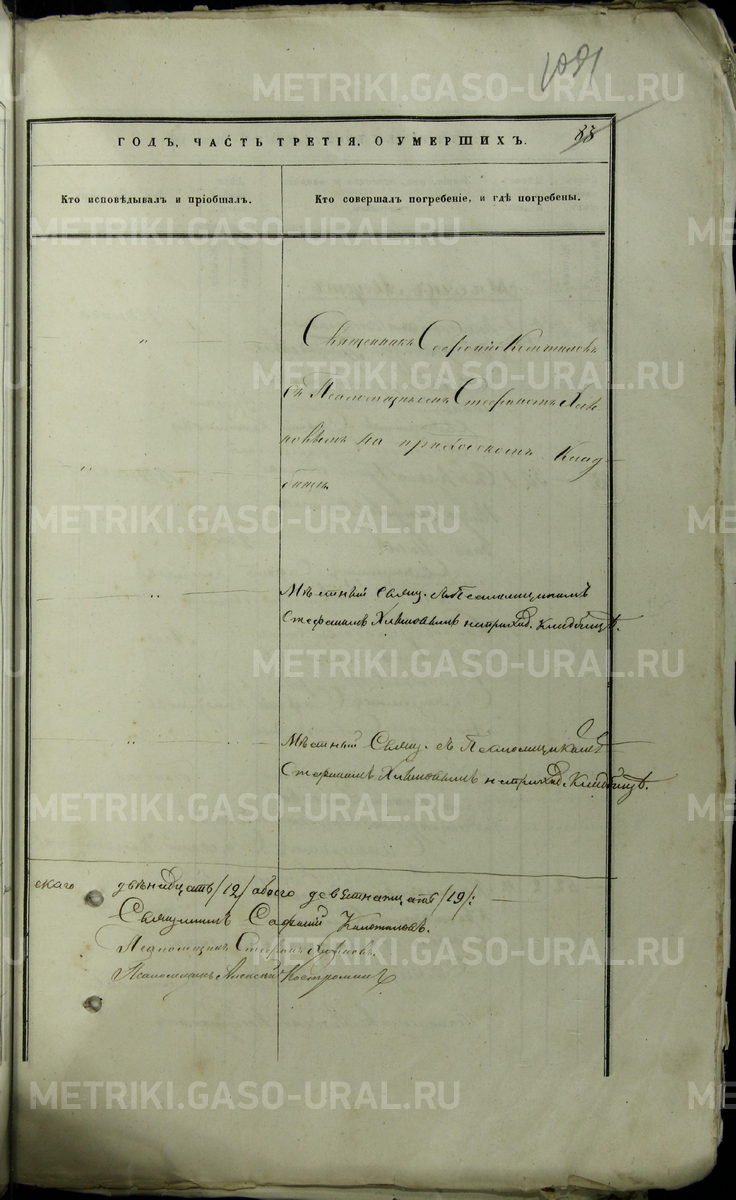 1091
ГОДЪ, ЧАСТЬ ТРЕТІЯ, О УМЕРШИХЪ.
88
Кто исповѣдывалъ и пріобщалъ.
Кто совершалъ погребеніе, и гдѣ погребены.
Священникъ Софроній
съ Псаломщикомъ Стефаномъ Хлы
новымъ на приходскомъ Клад
бищѣ.
Мѣстный Свящ. съ Псаломщикомъ
Стефаномъ Хлыновымъ на приход. Кладбищѣ.
Мѣстный Свящ. съ Псаломщикомъ
Стефаномъ Хлыновымъ на приход. Кладбищѣ.
скаго двѣнадцать /12/ обоего девятнадцать /19/:
Священникъ Софроній
Псаломщикъ Стефанъ Хлыновъ.
Псаломщикъ Алексій Костроминъ
METRIKI.GASO-URAL.RU